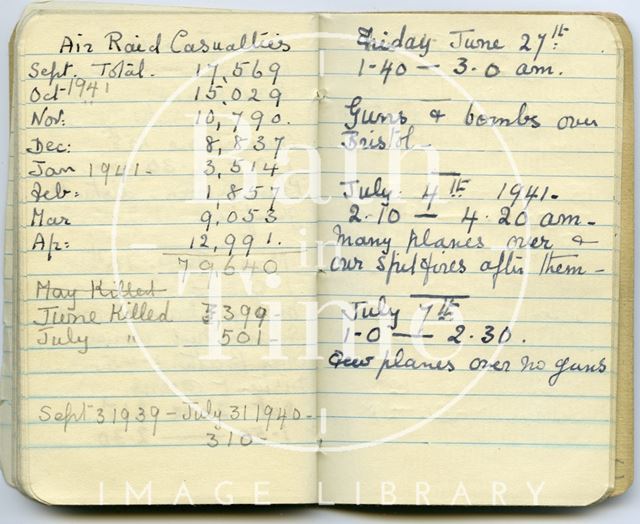 Air Raid Casualties
Sept. Total. 17,569
Oct 1941 15,029
Nov: 10,790.
Dec: 8,837
Jan 1941- 3,514
Feb: 1,857
Mar 9,053
Ap: 12,991.
79,640
May Killed
June Killed 399-
July " 501-
Sept 3 1939 - July 31 1940-
310-
Friday June 27th
1-40 — 3.0 am.
Guns & bombs over
Bristol-
July 4th 1941-
2.10 — 4.20 am-
Many planes over &
our Spitfires after them-
July 7th
1-0 — 2.30.
Few planes over no guns
Bath
in
Time
IMAGE LIBRARY